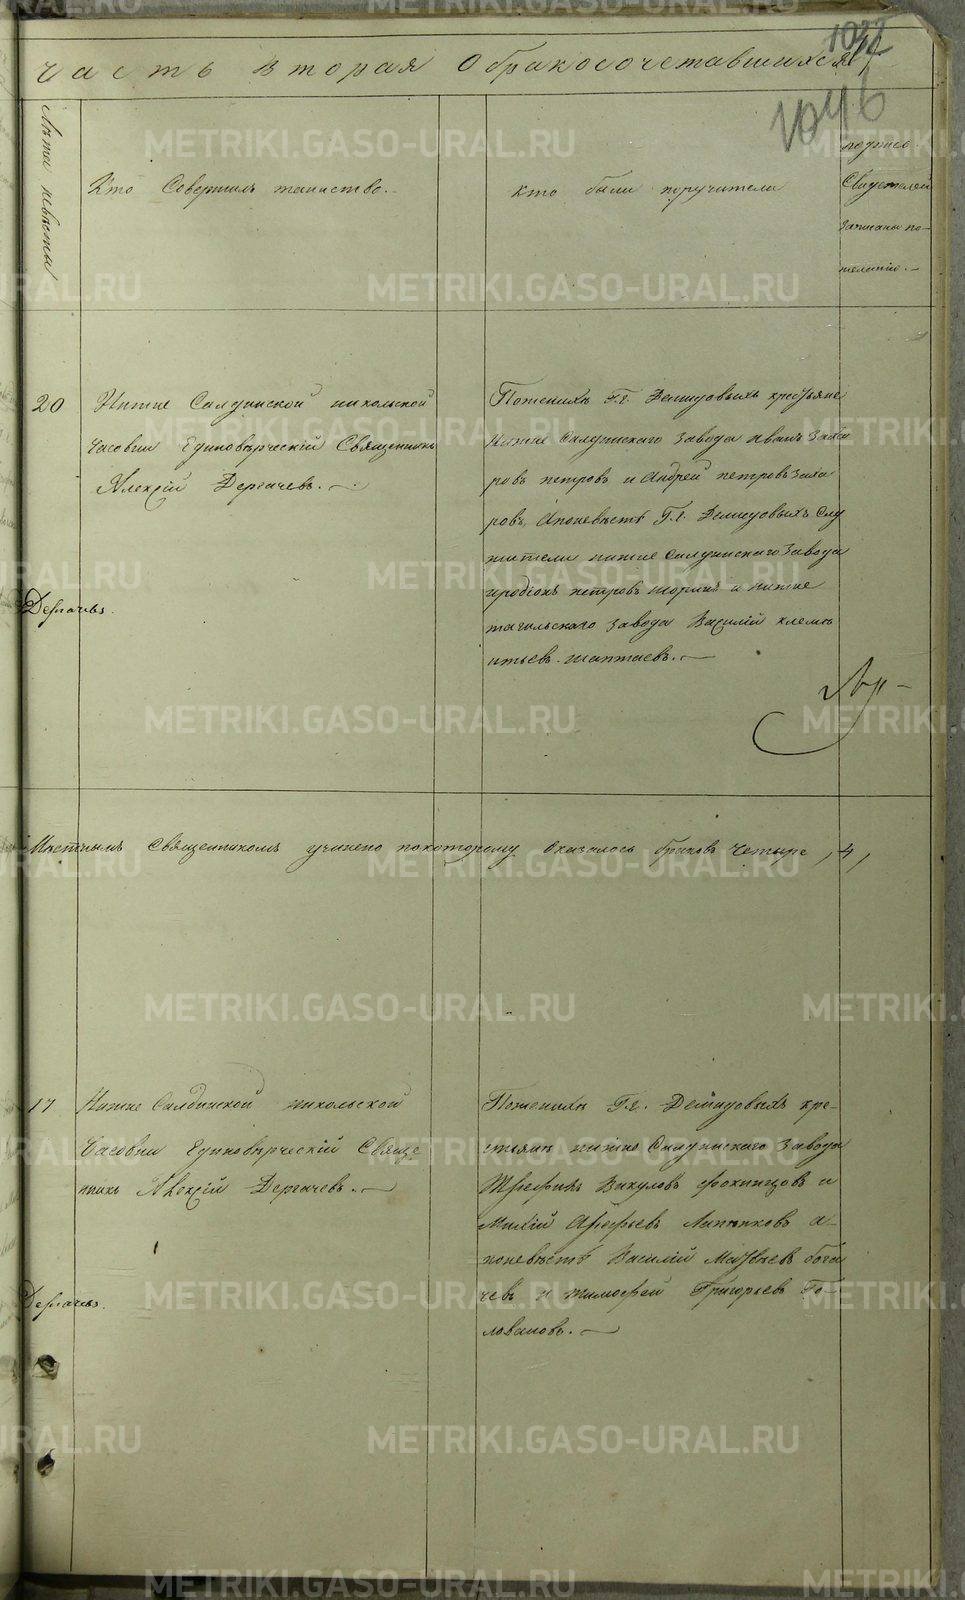 1042
Часть вторая О бракосочетавшихся
1046
Лѣта невѣсты
Кто Совершилъ таинство.
кто были поручители
подпись
Свидетелей
записаны по
желанію.
20
Нижне Салдинской никольской
Часовни Единовѣрческій Священникъ
Алексій Дергачевъ.
Дергачевъ.
Пожениxѣ Г.г. Демидовыхъ крестьяне
Нижне Салдинскаго завода иванъ Заха
ровъ петровъ и Андрей петровъ Заха
ровъ, Апоневѣстѣ Г.г. Демидовыхъ Слу
жители нижне Салдинскаго Завода
иродіонъ петровъ и нижне
тагильскаго завода Василій клемен
тьевъ шаптаевъ.
Мѣстнымъ Священникомъ учинено покоторому оказалось браковъ Четыре, 4,
17
Нижне Салдинской никольской
Часовни Единовѣрческій Священ
никъ Алексій Дергачевъ.
Дергачевъ.
Поженихѣ Г.г. Демидовыхъ кре-
стьяне нижне Салдинскаго Завода
Трефилъ Вакуловъ фокинцовъ и
Милій Арефьевъ а-
поневѣстѣ Василій Матвѣевъ бога
чевъ и тимофей Григорьевъ Го-
ловановъ.
METRIKI.GASO-URAL.RU